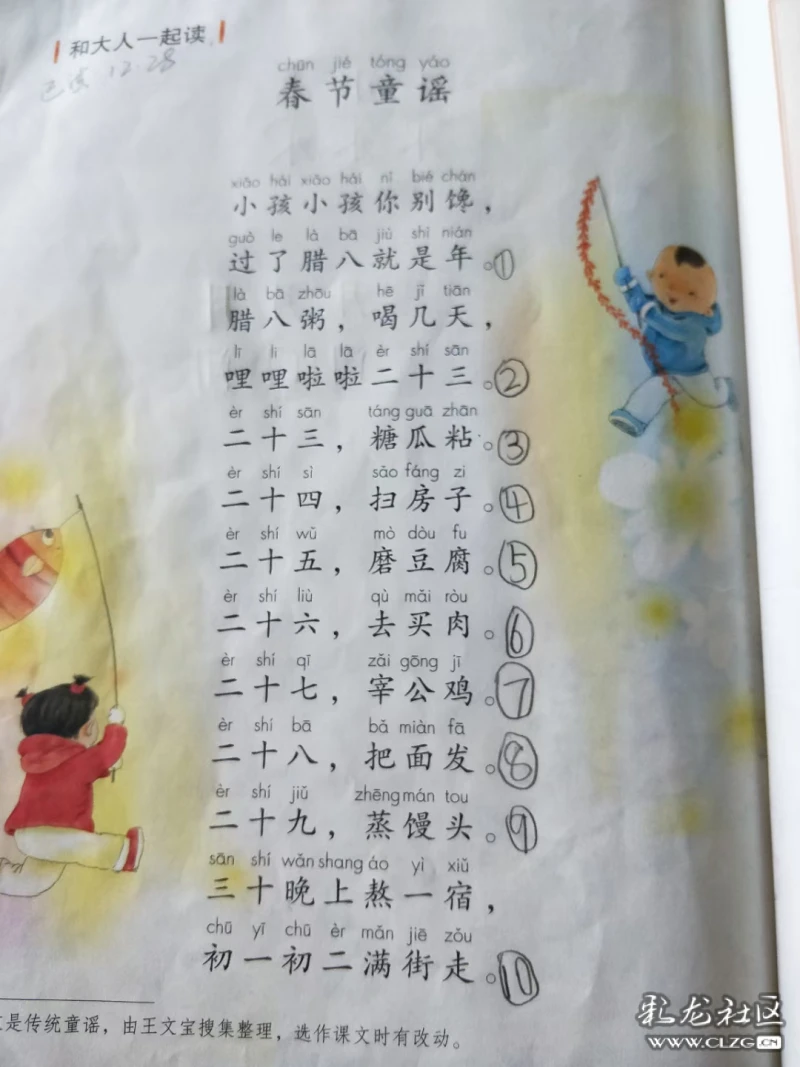 和大人一起读
已读 12.28
chūn jié tóng yáo
春节童谣
xiǎo hái xiǎo hái nǐ bié chán
小孩小孩你别馋，
guò le là bā jiù shì nián
过了腊八就是年。①
là bā zhōu hē jǐ tiān
腊八粥，喝几天，
lī li lā lā èr shí sān
哩哩啦啦二十三。②
èr shí sān táng guā zhān
二十三，糖瓜粘。③
èr shí sì sǎo fáng zi
二十四，扫房子。④
èr shí wǔ mò dòu fu
二十五，磨豆腐。⑤
èr shí liù qù mǎi ròu
二十六，去买肉。⑥
èr shí qī zǎi gōng jī
二十七，宰公鸡。⑦
èr shí bā bǎ miàn fā
二十八，把面发。⑧
èr shí jiǔ zhēng mán tou
二十九，蒸馒头。⑨
sān shí wǎn shang áo yì xiǔ
三十晚上熬一宿，
chū yī chū èr mǎn jiē zǒu
初一初二满街走。⑩
是传统童谣，由王文宝搜集整理，选作课文时有改动。
彩龙社区
WWW.CLZG.CN